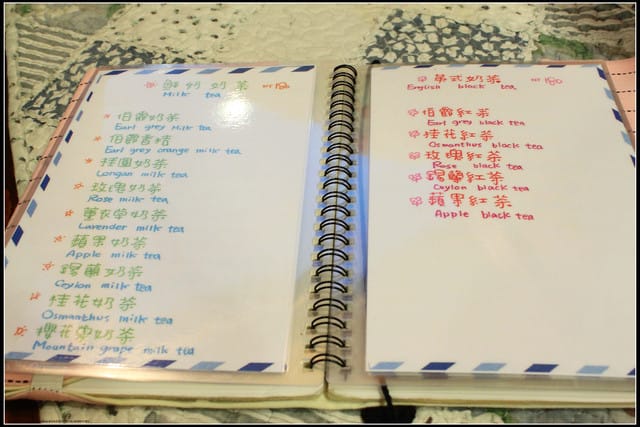 鮮奶奶茶 NT 180
Milk tea
伯爵奶茶
Earl grey Milk tea
伯爵香桔
Earl grey orange milk tea
桂圓奶茶
Longan milk tea
玫瑰奶茶
Rose milk tea
薰衣草奶茶
Lavender milk tea
蘋果奶茶
Apple milk tea
錫蘭奶茶
Ceylon milk tea
桂花奶茶
Osmanthus milk tea
櫻花奶茶
Mountain grape milk tea
英式奶茶 NT 180
English black tea
伯爵紅茶
Earl grey black tea
桂花紅茶
Osmanthus black tea
玫瑰紅茶
Rose black tea
錫蘭紅茶
Ceylon black tea
蘋果紅茶
Apple black tea